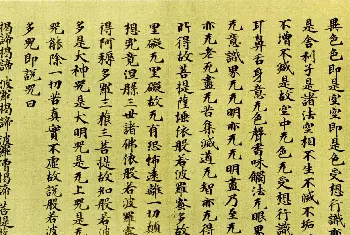 異色色即是空空即是色受想行識亦
是舍利子是諸法空相不生不滅不垢
不增不減是故空中无色无受想行識
耳鼻舌身意无色聲香味觸法无眼界
无意識界无无明亦无无明盡乃至无
亦无老死盡无苦集滅道无智亦无得
所得故菩提薩埵依般若波羅蜜多故
罣礙无罣礙故无有恐怖遠離一切顛
想究竟涅槃三世諸佛依般若波羅
得阿耨多羅三藐三菩提故知般若波羅
多是大神咒是大明咒是无上咒是无
咒能除一切苦真實不虛故說般若波羅
多咒即說咒曰
揭諦揭諦 波羅揭諦 波羅僧揭諦 菩提